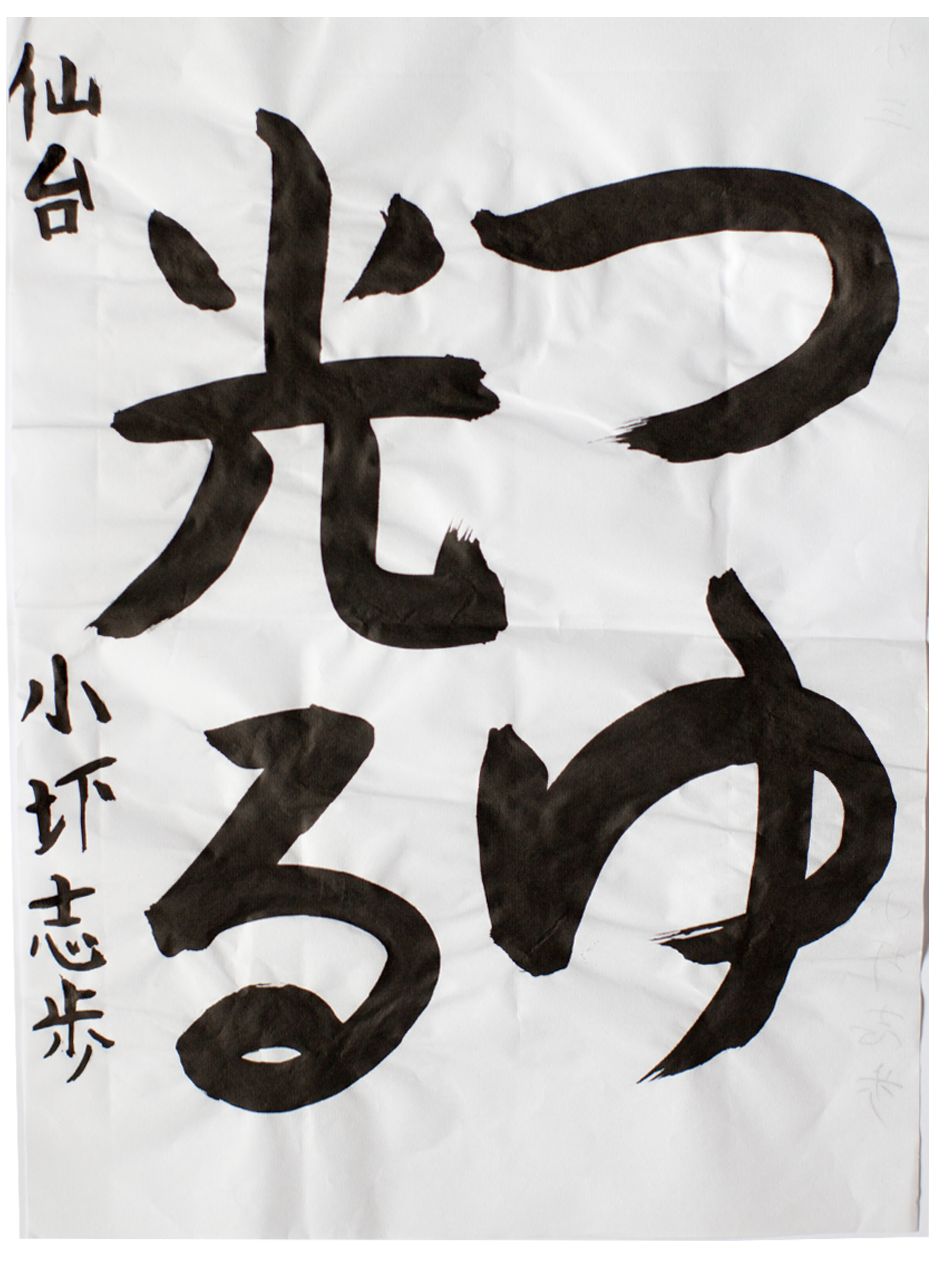 つゆ
光る
仙台 小圷志歩